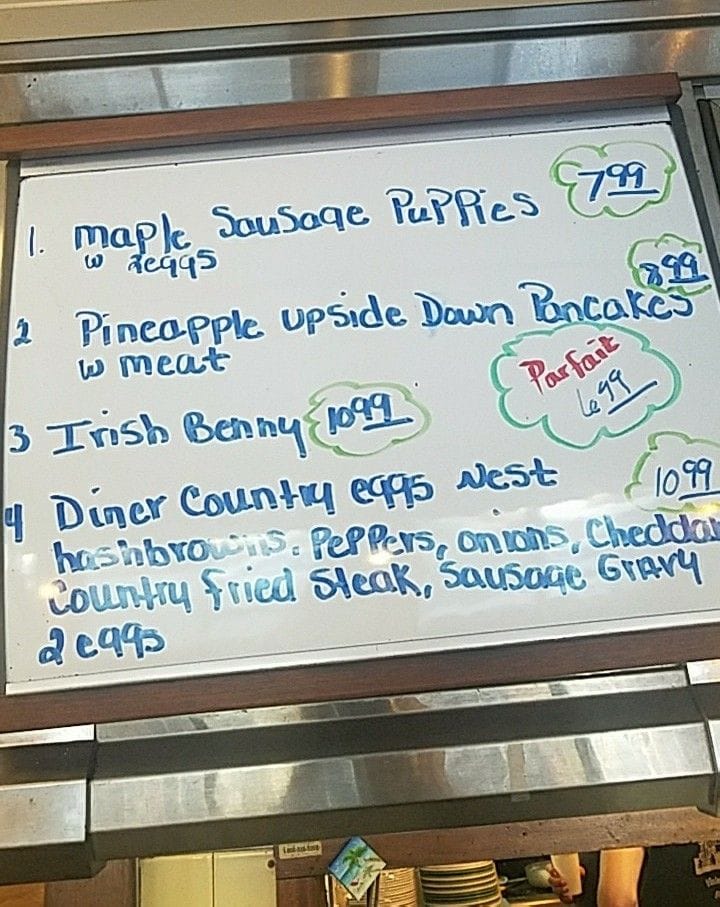 1. maple Sausage Puppies 799
w 2eggs
899
2 Pineapple upside Down Pancakes
w meat
Parfait
699
3 Irish Benny 1099
4 Diner Country eggs Nest 1099
hashbrowns. Peppers, onions, Cheddar
Country fried Steak, Sausage Gravy
2 eggs